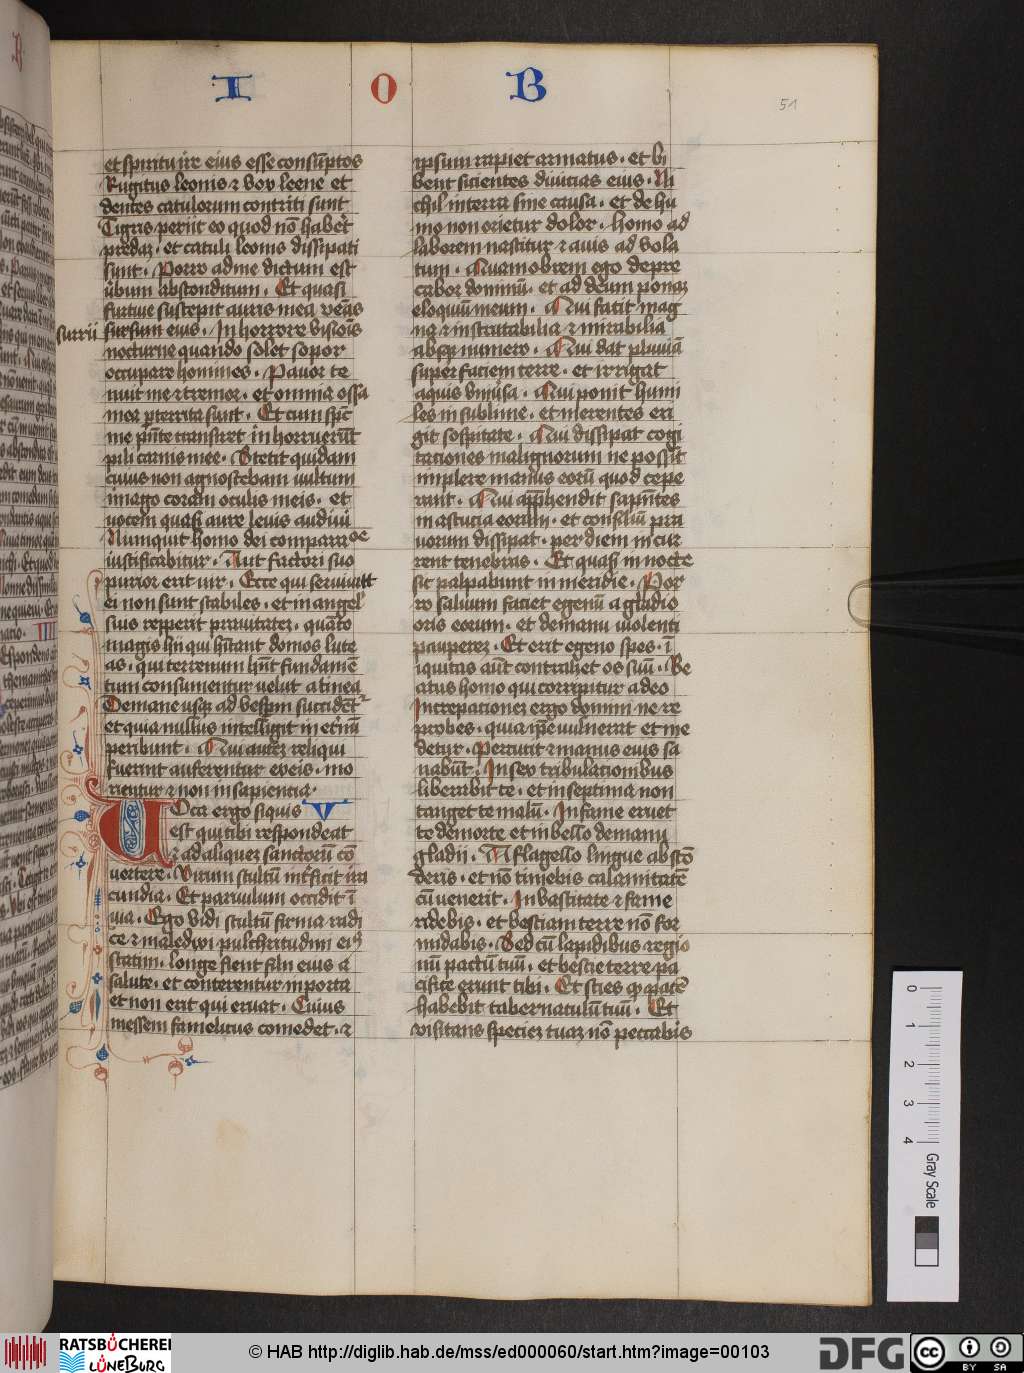 I O B
51
et spiritu ire eius esse consūptos
Rugitus leonis ⁊ vox leene et
dentes catulorum contriti sunt
Tigris periit eo quod nō haberꝫ
predaꝫ. et catuli leonis dissipati
sunt. Porro ad me dictum est
ũbum absconditum. Et quasi
furtiue suscepit auris mea venas
surrii
susurrii eius. In horrore visiōis
nocturne quando solet sopor
occupare homines. Pauor te
nuit me ⁊ tremor. et omnia ossa
mea ꝑterrita sunt. Et cum spūs
me p̄nte transiret in horruerūt
pili carnis mee. Stetit quidam
cuius non agnoscebam vultum
imago coram oculis meis. et
vocem quasi aure leuis audiui
Numquit homo dei comparacōe
iustificabitur. Aut factori suo
purior erit uir. Ecce qui seruiunt
ei non sunt stabiles. et in angel'
suis repperit prauitateꝫ. quāto
magis hii qui hītant domos lute
as. qui terrenum hn̄t fundamē
tum consumentur velut a tinea
De mane usqꝫ ad vesꝑm succident̃
et quia nullus intelligit in et̃nū
peribunt. Qui auteꝫ reliqui
fuerint auferentur ex eis. mo
rientur ⁊ non in sapiencia.
Voca ergo si quis V
est qui tibi respondeat
⁊ ad aliqueꝫ sanctorū cō
uertere. Virum stultū int̃ficit ira
cundia. Et paruulum occidit ī
uia. Ego vidi stultū firma radi
ce ⁊ maledixi pulchritudini eiꝰ
statim. longe fient filii eius a
salute. et conterentur in porta
et non erit qui eruat. Cuius
messem famelicus comedet. ⁊
ipsum rapiet armatus. et bi
bent sicientes diuicias eius. Ni
chil in terra sine causa. et de hu
mo non orietur dolor. Homo ad
laborem nascitur ⁊ auis ad vola
tum. Quamobrem ego depre
cabor dominū. et ad deum ponaꝫ
eloquiū meum. Qui facit mag
na ⁊ inscrutabilia ⁊ mirabilia
absqꝫ numero. Qui dat pluuiā
super faciem terre. et irrigat
aquis vniũsa. Qui ponit humi
les in sublime. et merentes eri
git sospitate. Qui dissipat cogi
taciones malignorum ne possīt
implere manus eorū quod cepe
rant. Qui app̄hendit sapn̄tes
in astucia eorum. et consiliū pra
uorum dissipat. per diem incur
rent tenebras. Et quasi in nocte
sic palpabunt in meridie. Por
ro saluum faciet egenū a gladio
oris eorum. et de manu uiolenti
paupereꝫ. Et erit egeno spes. ī
iquitas aūt contrahet os suū. Be
atus homo qui corripitur a deo
Increpacioneꝫ ergo domini ne re
probes. quia ip̄e vulnerat et me
detur. Percutit ⁊ manus eius sa
nabūt. In sex tribulacionibus
liberabit te. et in septima non
tanget te malū. In fame eruet
te de morte et in bello de manu
gladii. A flagello lingue abscō
deris. et nō timebis calamitatē
cū uenerit. In vastitate ⁊ fame
ridebis. et bestiam terre nō for
midabis. Sed cū lapidibus regio
nū pactū tuū. et bestie terre pa
cifice erunt tibi. Et scies ꝙ pacē
habebit tabernaculū tuū. Et
visitans specieꝫ tuaꝫ nō peccabis
0
1
2
3
4
Gray Scale
RATSBÜCHEREI
LÜNEBURG
© HAB http://diglib.hab.de/mss/ed000060/start.htm?image=00103
DFG
cc
BY SA